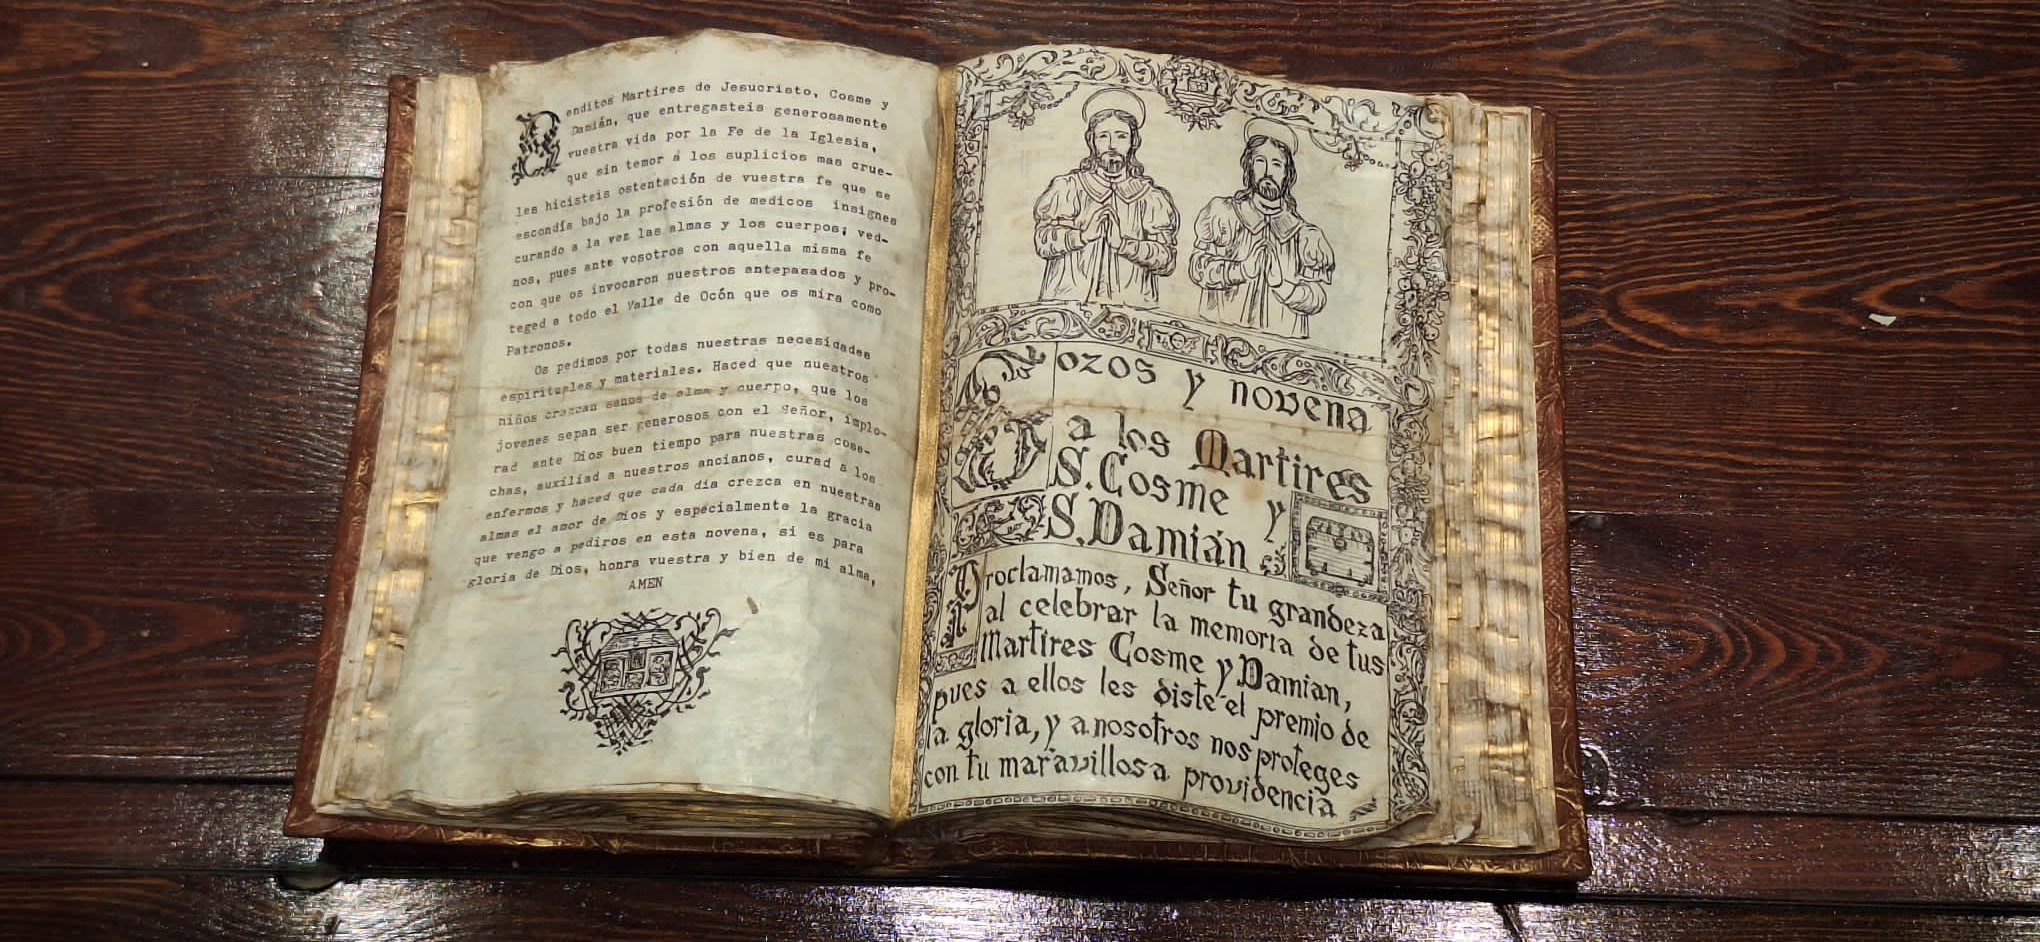 Benditos Martires de Jesucristo, Cosme y
Damián, que entregasteis generosamente
vuestra vida por la Fe de la Iglesia,
que sin temor a los suplicios mas crue-
les hicisteis ostentación de vuestra fe que se
escondía bajo la profesión de medicos insignes
curando a la vez las almas y los cuerpos; ved-
nos, pues ante vosotros con aquella misma fe
con que os invocaron nuestros antepasados y pro-
teged a todo el Valle de Ocón que os mira como
Patronos.
Os pedimos por todas nuestras necesidades
espirituales y materiales. Haced que nuestros
niños crezcan sanos de alma y cuerpo, que los
jovenes sepan ser generosos con el Señor, implo-
rad ante Dios buen tiempo para nuestras cose-
chas, auxiliad a nuestros ancianos, curad a los
enfermos y haced que cada dia crezca en nuestras
almas el amor de Dios y especialmente la gracia
que vengo a pediros en esta novena, si es para
gloria de Dios, honra vuestra y bien de mi alma,
AMEN
Gozos y novena
a los Martires
S. Cosme y
S. Damián
Proclamamos, Señor tu grandeza
al celebrar la memoria de tus
Martires Cosme y Damian,
pues a ellos les diste el premio de
la gloria, y a nosotros nos proteges
con tu maravillosa providencia